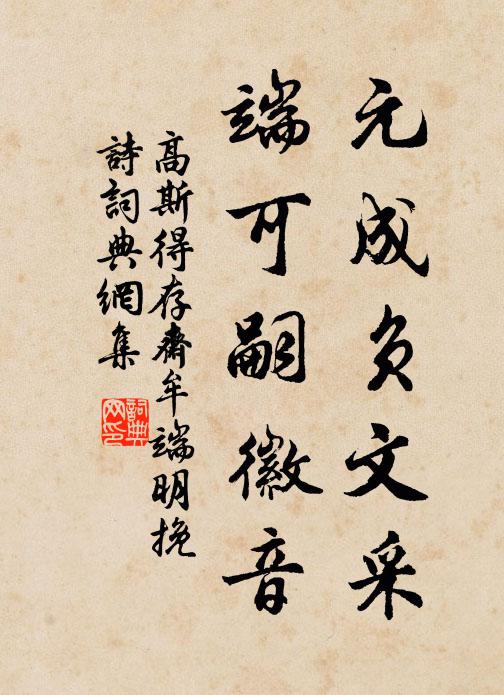 元成负文采
端可嗣徽音
高斯得存齋牟端明挽
詩詞典網集
詞典网印